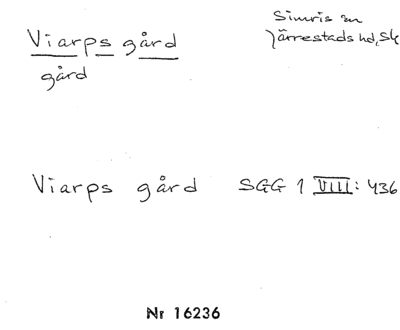 Viarps gård
gård
Simris sn
Järrestads hd, Sk
Viarps gård SGG 1 VIII: 436
Nr 16236